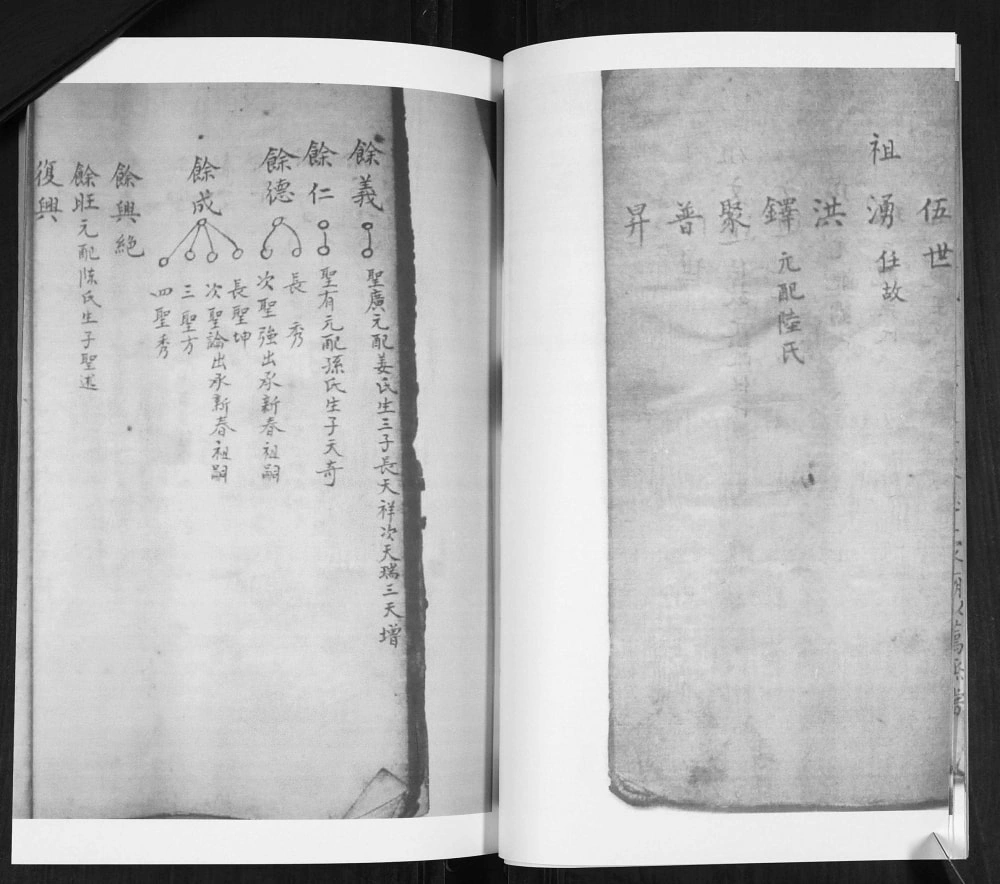 伍世
祖湧任故
洪
鐸元配陸氏
聚
普
昇
餘義
聖廣元配姜氏生三子長天祥次天瑞三天增
餘仁
聖有元配孫氏生子天奇
餘德
長秀
次聖強出承新春祖嗣
餘成
長聖坤
次聖論出承新春祖嗣
三聖方
四聖秀
餘興絕
餘旺元配陈氏生子聖遠
復興